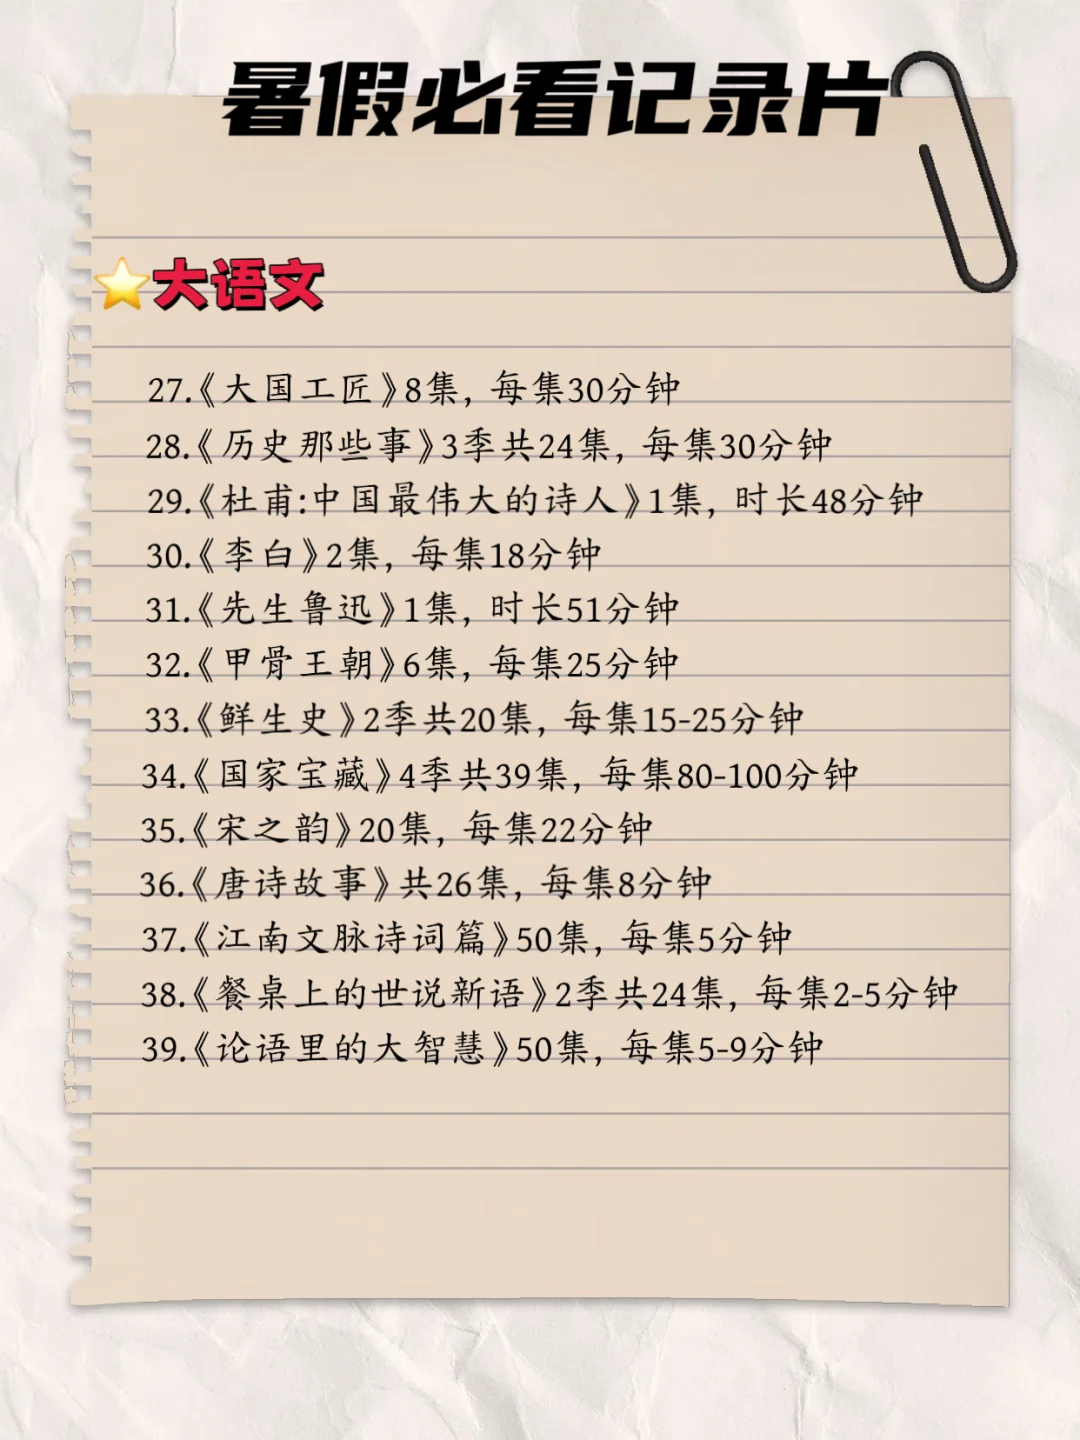 暑假必看记录片
大语文
27.《大国工匠》8集，每集30分钟
28.《历史那些事》3季共24集，每集30分钟
29.《杜甫:中国最伟大的诗人》1集，时长48分钟
30.《李白》2集，每集18分钟
31.《先生鲁迅》1集，时长51分钟
32.《甲骨王朝》6集，每集25分钟
33.《鲜生史》2季共20集，每集15-25分钟
34.《国家宝藏》4季共39集，每集80-100分钟
35.《宋之韵》20集，每集22分钟
36.《唐诗故事》共26集，每集8分钟
37.《江南文脉诗词篇》50集，每集5分钟
38.《餐桌上的世说新语》2季共24集，每集2-5分钟
39.《论语里的大智慧》50集，每集5-9分钟